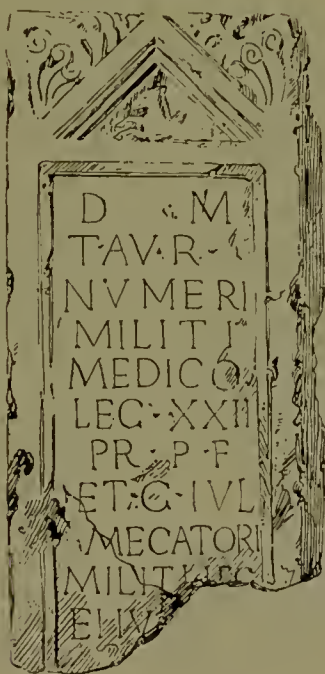 D M
T·AV·R·
NVMERI
MILITI
MEDICO
LEG·XXII
PR·P·F
ET·G·IVL
AMECATORI
MILITI